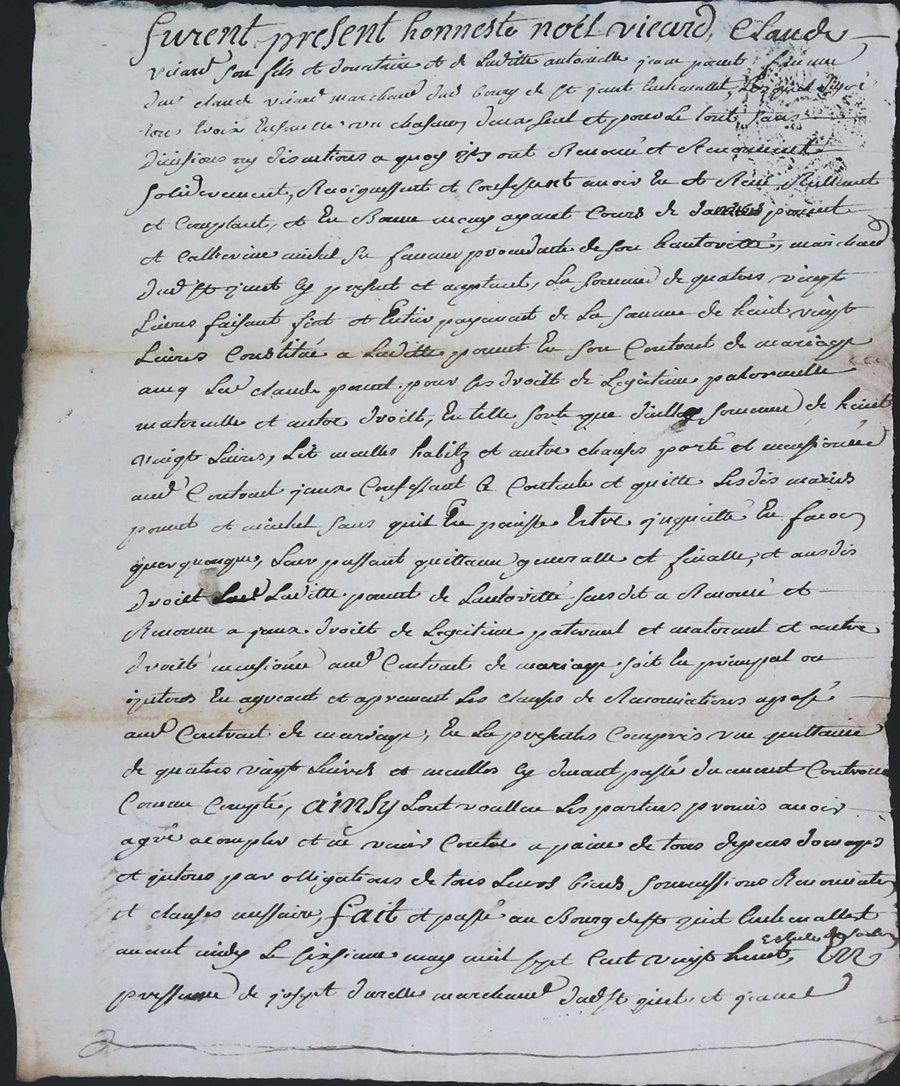 furent present honneste noël vicard, Claude
vicard son fils et donataire et de Laditte antoinette ponnet femme
dud claude vicard marchand dud bourg de st just Lachevallet,
tous trois ensemble un chascun deux seul et pour Le tout sans
divisions ny discutions a quoy ils ont Renoncé et Renoncent
soliderement, Recognessent et Confessent avoir Eu et Receu Reellement
et Comptant, et En Bonne monoy ayant Cours de ponnet
et Catherine michel sa famme proceddante de son hautoritté, marchand
dud st just Cy present et aceptant, La somme de quatres vingt
Livres faisant fin et Entier payement de La somme de huit vingt
Livres Constitué a Laditte ponnet En son Contrat de mariage
avec Led claude ponnet pour ses droits de Legitime paternelle
maternelle et autre droits, En telle sorte que dicelle somme de huit
vingt Livres, Lit meuble habitz et autre chauses porté et mensionnée
aud Contract yceux Confessant Ce Contente et quitte Lesdis mariés
ponnet et michel sans quil En puisse Estre inquietté En facon
quelquonque, Leur passant quittance generalle et finalle, et ausdis
droits Laditte ponnet de Lautoritté susdit a Renoncé et
Renonce a yceux droits de Legitime paternel et maternel et autre
droits mensionne aud Contract de mariage soit En principal ou
interes En agreant et aprouvant Les clauses de Renonciations aposé
aud Contract de mariage, En La presentes Compris une quittance
de quatres vingt Livres et meubles Cy devant passé duement Controllé
Comme Compté, ainsy Lont voullu Les parties promis avoir
agré acomplir et ne venir Contre a paine de tous depens domages
et interes par obligations de tous Leurs biens soumissions Renonciations
et clauses nessaire, fait et passé au Bourg de st just Lachevallet
avant midy Le sixsieme may mil sept Cent vingt huit,
pressance de joseph marchand dud st just et